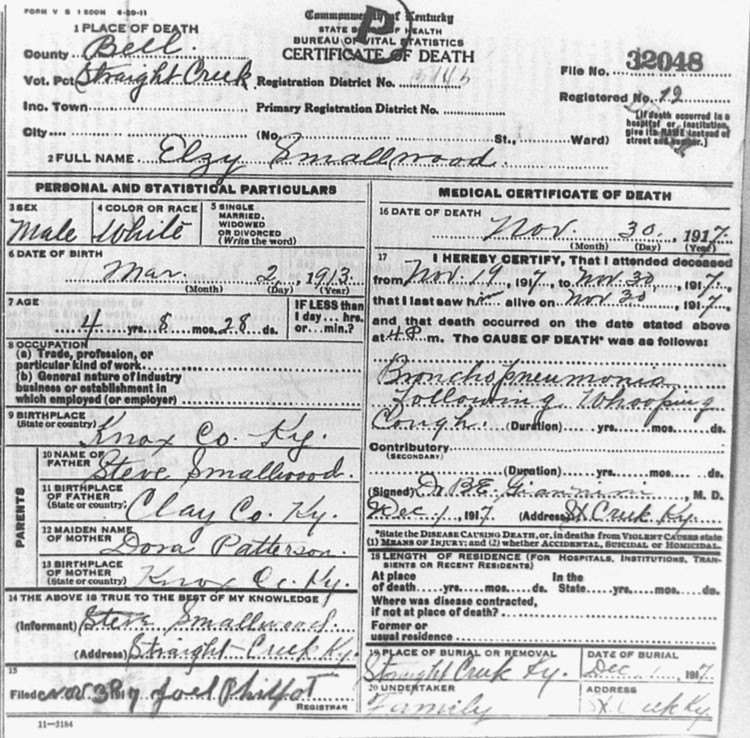 FORM V S 1 500M 6-20-11
Commonwealth of Kentucky
STATE BOARD OF HEALTH
BUREAU OF VITAL STATISTICS
CERTIFICATE OF DEATH
1 PLACE OF DEATH
County Bell.
Vot. Pct Straight Creek Registration District No.
Inc. Town Primary Registration District No.
City (No. St., Ward)
File No. 32048
Registered No. 12
[If death occurred in a
hospital or institution,
give its NAME instead of
street and number.]
2 FULL NAME Elzy Smallwood.
PERSONAL AND STATISTICAL PARTICULARS
3 SEX Male
4 COLOR OR RACE White
5 SINGLE
MARRIED,
WIDOWED
OR DIVORCED
(Write the word)
6 DATE OF BIRTH
Mar. 2, 1913
(Month) (Day) (Year)
7 AGE
4 yrs. 8 mos. 28 ds.
IF LESS than
1 day... hrs.
or... min.?
8 OCCUPATION
(a) Trade, profession, or
particular kind of work
(b) General nature of industry
business or establishment in
which employed (or employer)
9 BIRTHPLACE
(State or country) Knox Co. Ky.
PARENTS
10 NAME OF
FATHER Steve Smallwood.
11 BIRTHPLACE
OF FATHER
(State or country) Clay Co. Ky.
12 MAIDEN NAME
OF MOTHER Dora Patterson.
13 BIRTHPLACE
OF MOTHER
(State or country) Knox Co. Ky.
14 THE ABOVE IS TRUE TO THE BEST OF MY KNOWLEDGE
(Informant) Steve Smallwood.
(Address) Straight Creek Ky.
15
Filed Nov. 30 1917 Joel Philpot
REGISTRAR
11-3184
MEDICAL CERTIFICATE OF DEATH
16 DATE OF DEATH
Nov. 30, 1917.
(Month) (Day) (Year)
17 I HEREBY CERTIFY, That I attended deceased
from Nov. 19, 1917, to Nov 30, 1917,
that I last saw him alive on Nov 30, 1917,
and that death occurred on the date stated above
at 4 P m. The CAUSE OF DEATH* was as follows:
Bronchopneumonia
following Whooping
Cough. (Duration) yrs. mos. ds.
Contributory
(SECONDARY)
(Duration) yrs. mos. ds.
(Signed) Dr B.E. Giannini, M. D.
Dec 1, 1917 (Address) St Creek Ky.
*State the DISEASE CAUSING DEATH, or, in deaths from VIOLENT CAUSES state
(1) MEANS OF INJURY; and (2) whether ACCIDENTAL, SUICIDAL or HOMICIDAL.
18 LENGTH OF RESIDENCE (FOR HOSPITALS, INSTITUTIONS, TRAN-
SIENTS OR RECENT RESIDENTS)
At place In the
of death yrs. mos. ds. State yrs. mos. ds.
Where was disease contracted,
if not at place of death?
Former or
usual residence
19 PLACE OF BURIAL OR REMOVAL
Straight Creek Ky.
DATE OF BURIAL
Dec 1, 1917.
20 UNDERTAKER
Family
ADDRESS
St Creek Ky